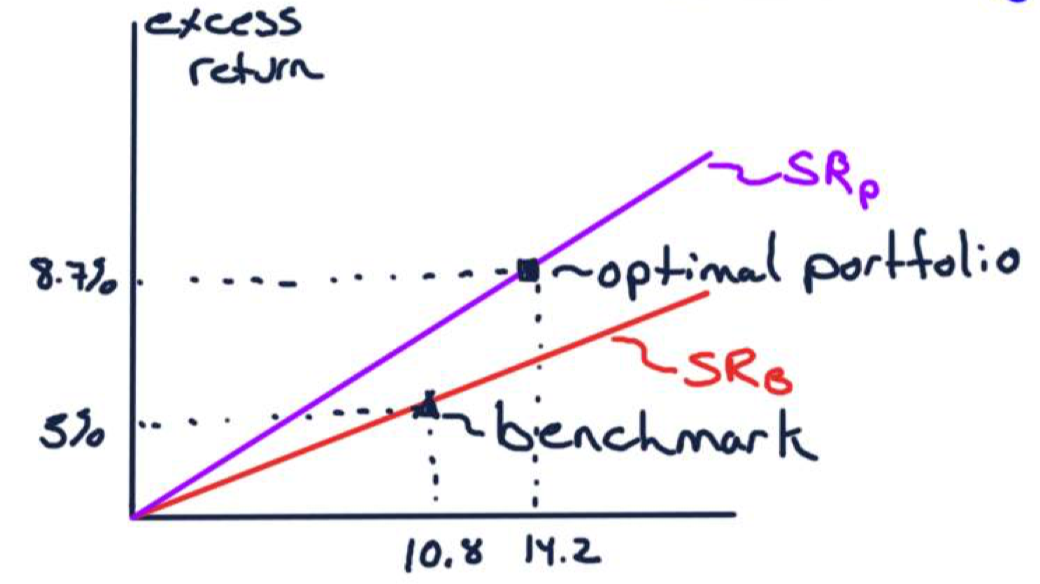 excess
return
SRp
8.7%
optimal portfolio
SRB
5%
benchmark
10.8
14.2